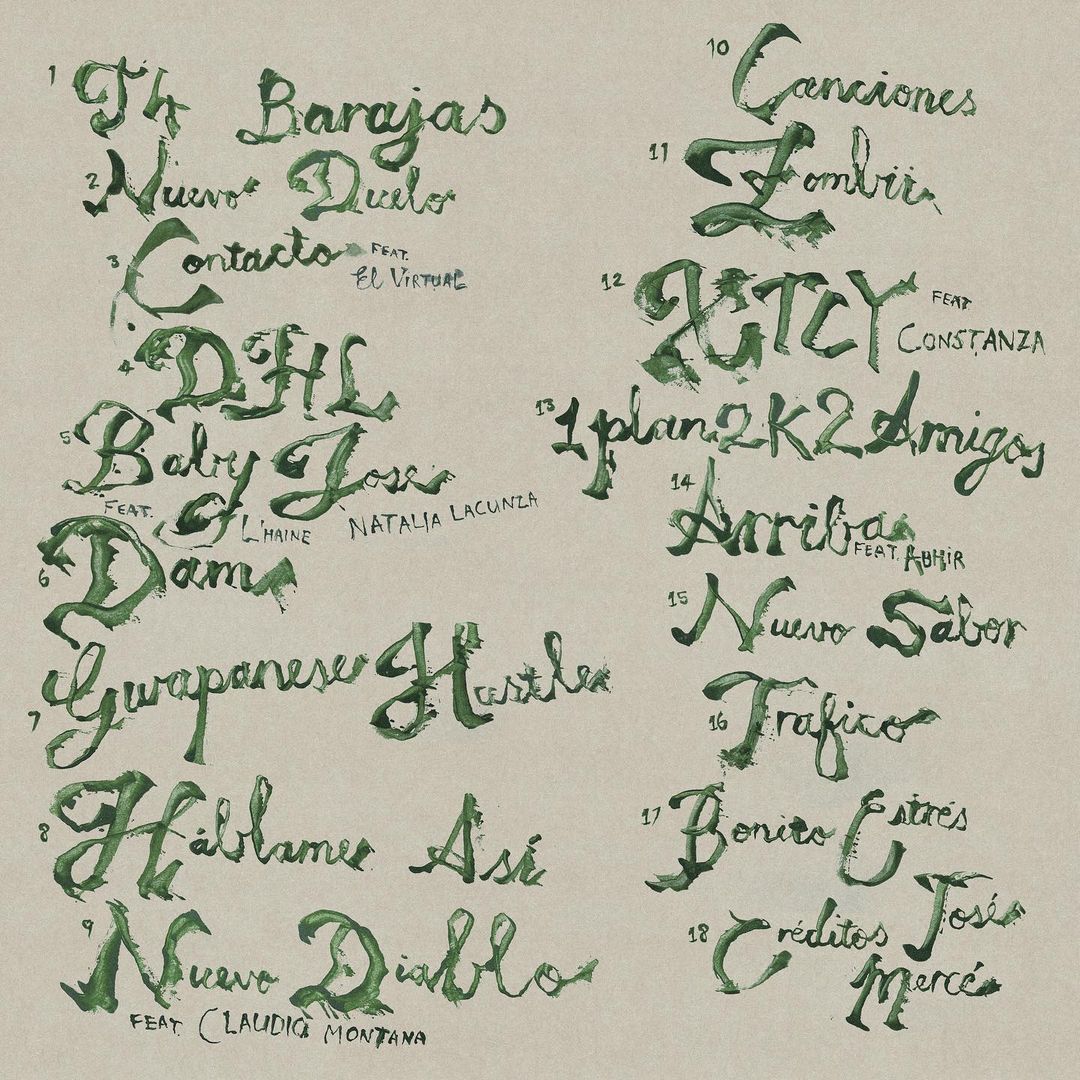 1 T4 Barajas
2 Nuevo Duelo
3 Contacto FEAT.
EL VIRTUAL
4 DHL
5 Baby Jose
FEAT. L'HAINE NATALIA LACUNZA
6 Dam
7 Gwapanese Hustle
8 Háblame Así
9 Nuevo Diablo
FEAT. CLAUDIO MONTANA
10 Canciones
11 Zombii
12 XTCY FEAT
CONSTANZA
13 1plan2K2Amigos
14 Arriba
FEAT. ABHIR
15 Nuevo Sabor
16 Trafico
17 Bonito Estrés
18 Créditos José
Mercé